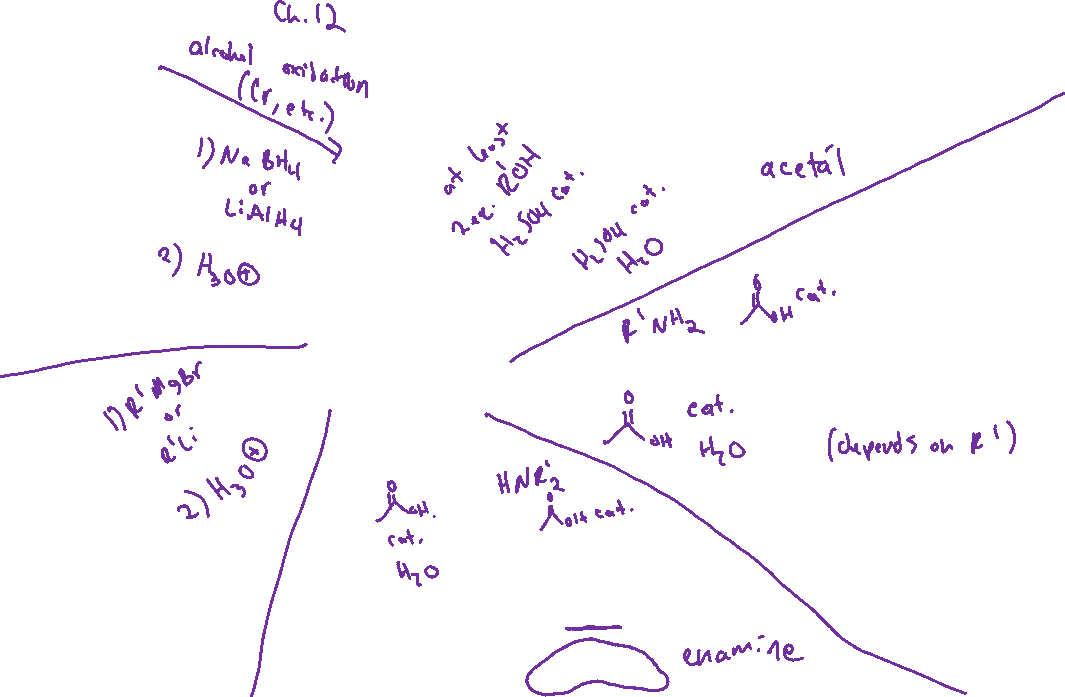 Ch. 12
alcohol oxidation
(Cr, etc.)
1) NaBH4
or
LiAlH4
2) H3O⊕
at least
2 eq. R'OH
H2SO4 cat.
H2SO4 cat.
H2O
acetal
R'NH2
OH cat.
O
O
OH
cat.
H2O
(depends on R')
1) R'MgBr
or
R'Li
2) H3O⊕
O
OH
cat.
H2O
HNR'2
O
OH cat.
enamine